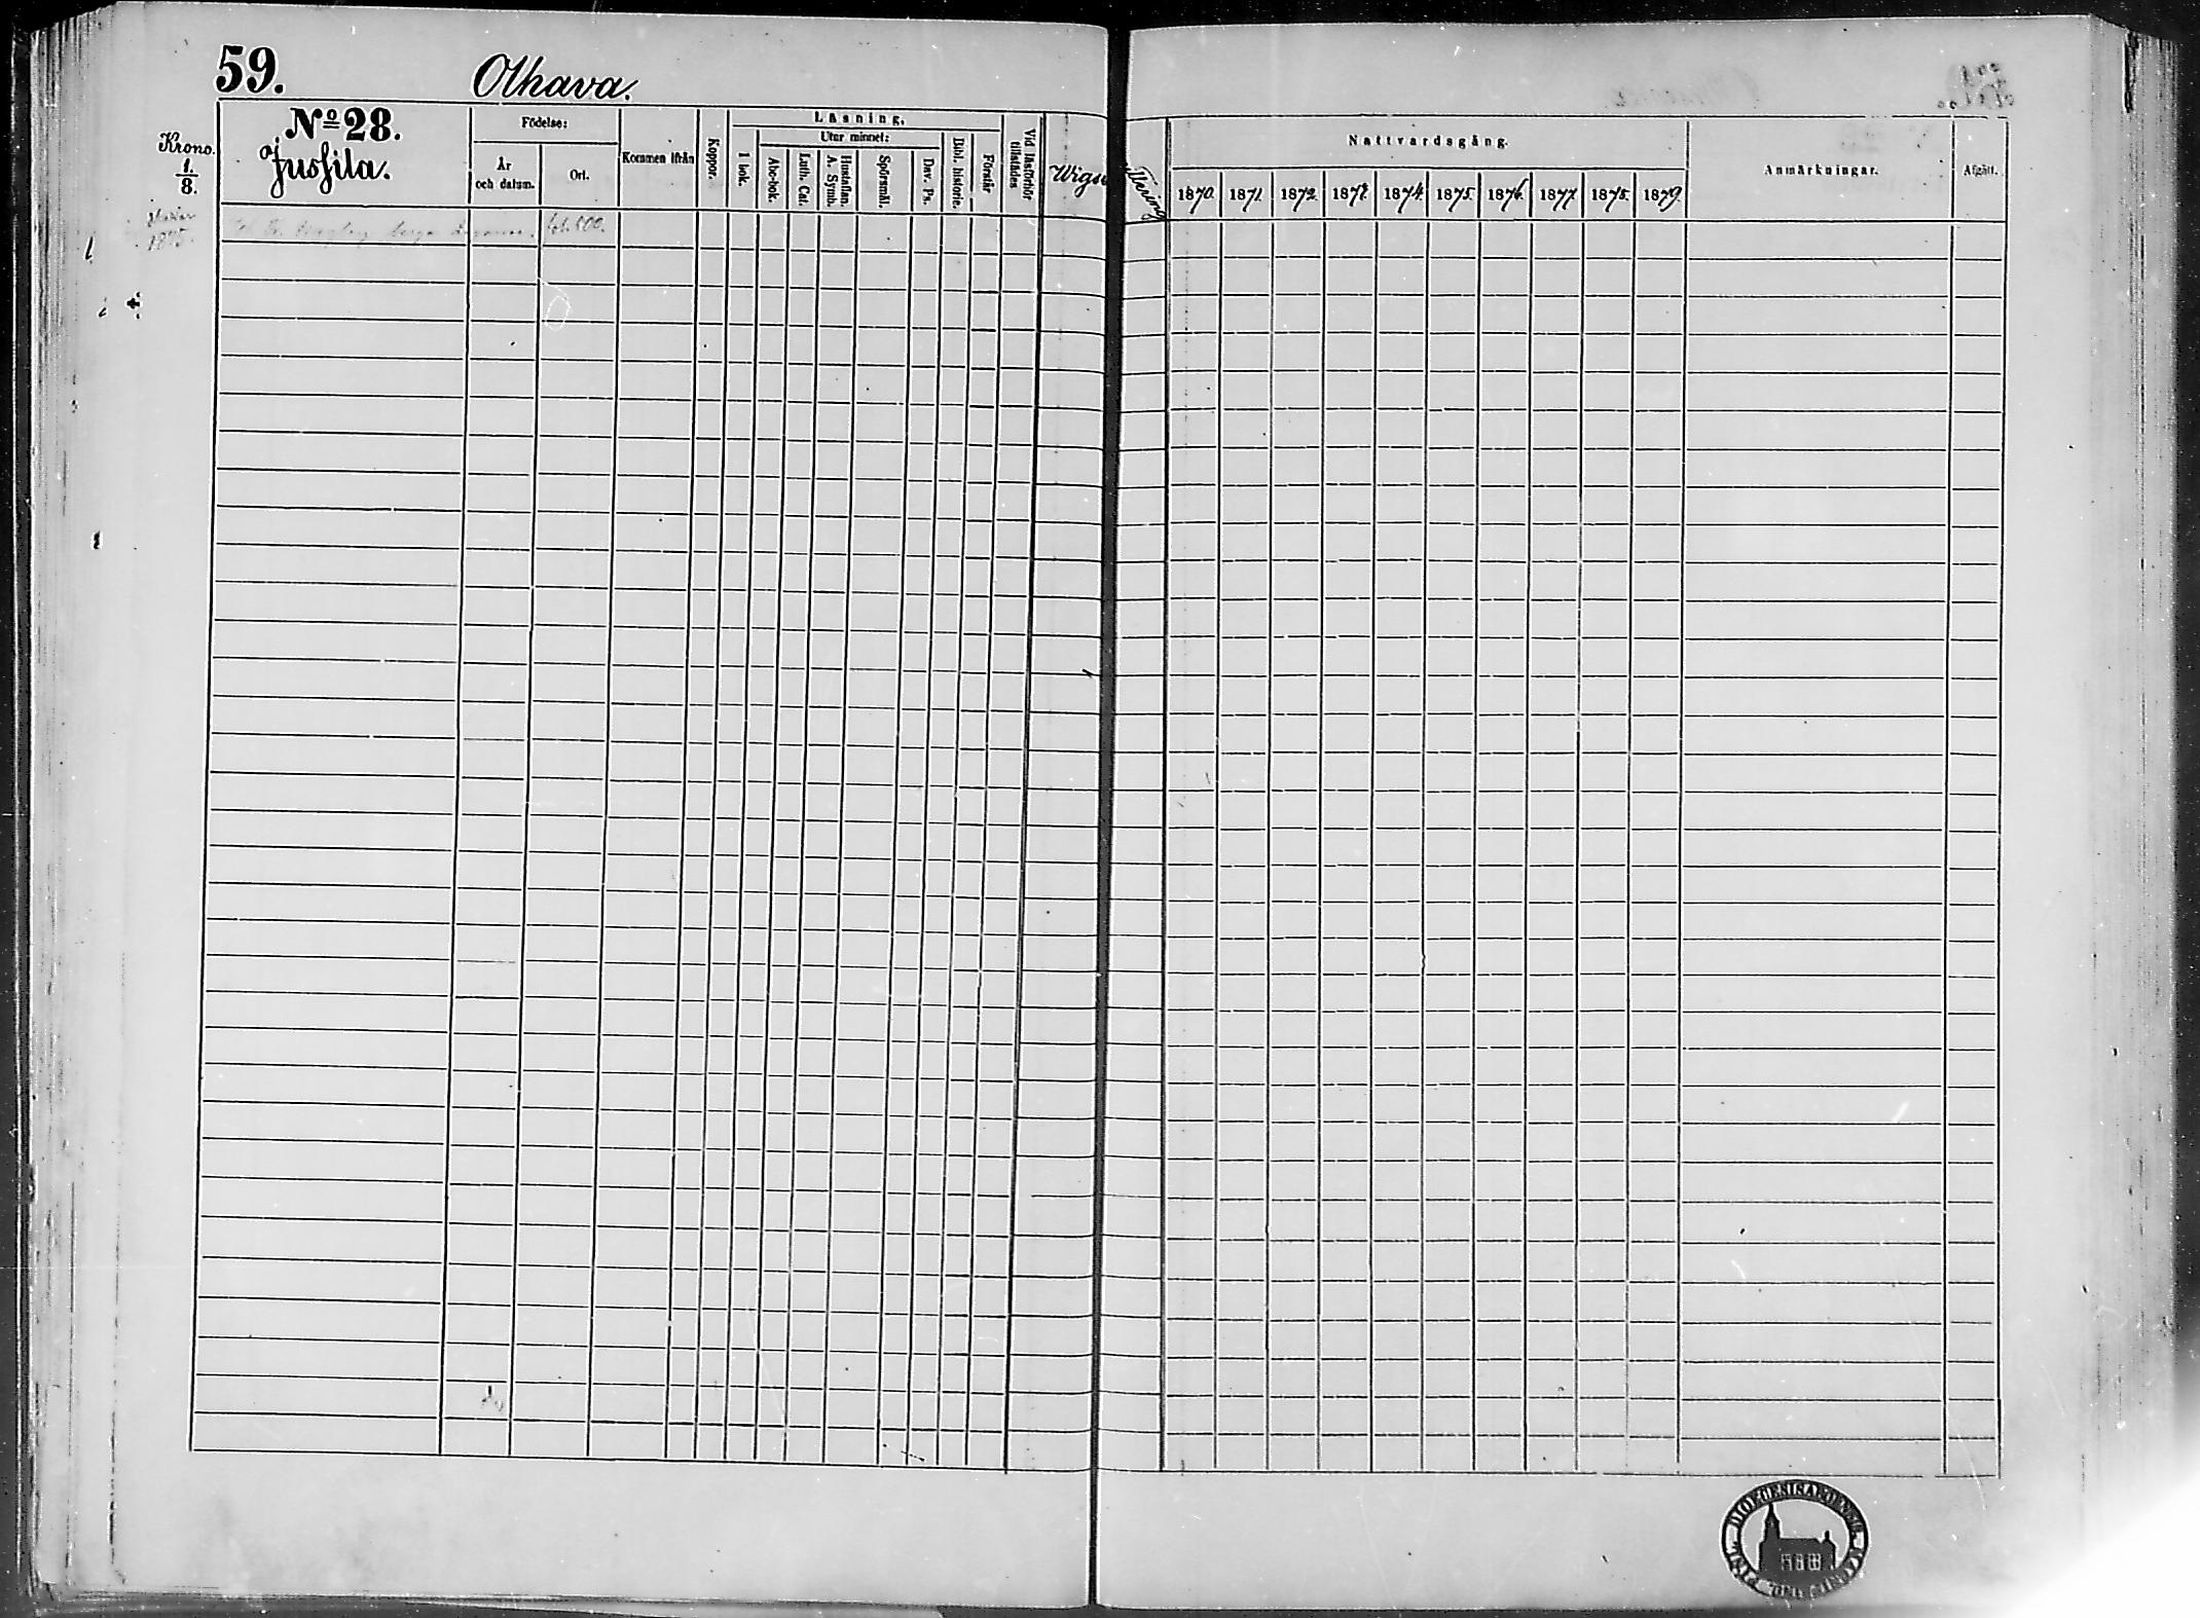 59.
Olhava.
Krono.
1/8.
No 28.
Jussila.
Födelse:
År
och datum.
Ort.
Kommen ifrån
Koppor.
Läsning.
I bok.
Utur minnet:
Abc-bok.
Luth. Cat.
Hustaflan.
A. Symb.
Spörsmål.
Dav. Ps.
Bibl. historie.
Förstår
Vid läsförhör
tillstädes
Wigs
Nattvardsgång.
1870. 1871. 1872. 1873. 1874. 1875. 1876. 1877. 1878. 1879.
Anmärkningar.
Afgått.
1875.
fol. 600.